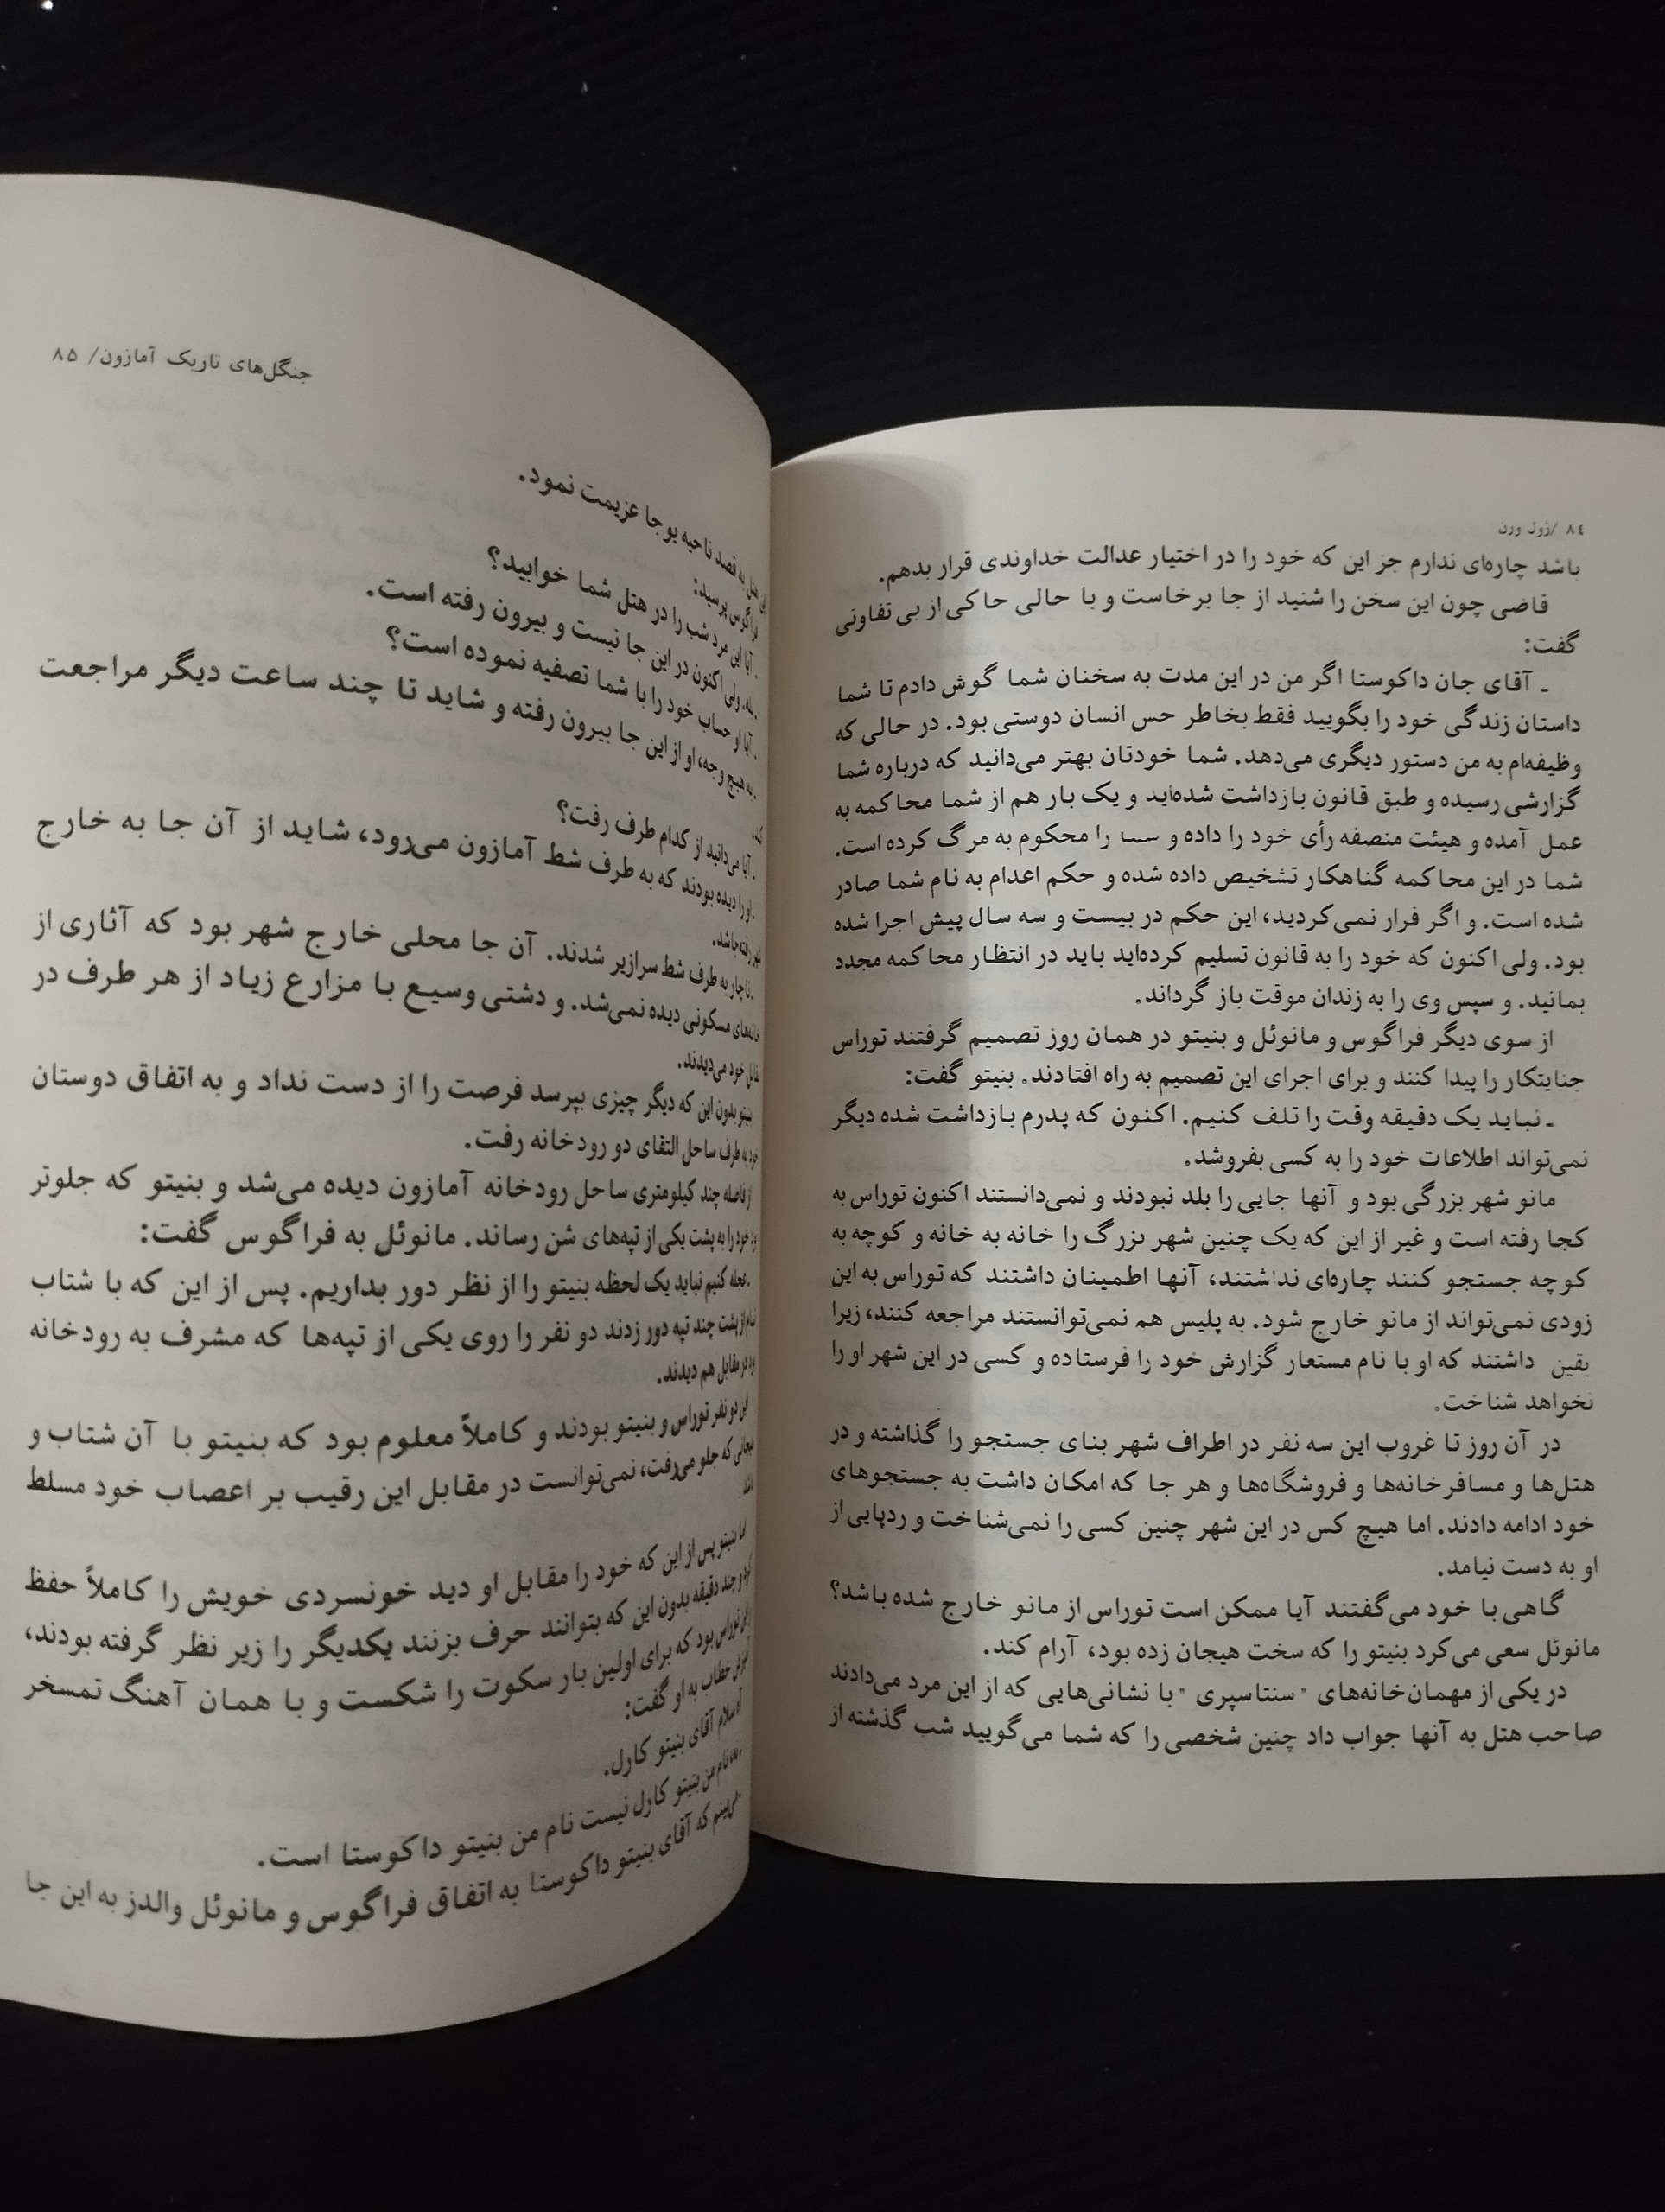 ٨٤ /ژول ورن
باشد چاره‌ای ندارم جز این که خود را در اختیار عدالت خداوندی قرار بدهم.
قاضی چون این سخن را شنید از جا برخاست و با حالی حاکی از بی تفاوتی
گفت:
ـ آقای جان داکوستا اگر من در این مدت به سخنان شما گوش دادم تا شما
داستان زندگی خود را بگویید فقط بخاطر حس انسان دوستی بود. در حالی که
وظیفه‌ام به من دستور دیگری می‌دهد. شما خودتان بهتر می‌دانید که درباره شما
گزارشی رسیده و طبق قانون بازداشت شده‌اید و یک بار هم از شما محاکمه به
عمل آمده و هیئت منصفه رأی خود را داده و شما را محکوم به مرگ کرده است.
شما در این محاکمه گناهکار تشخیص داده شده و حکم اعدام به نام شما صادر
شده است. و اگر فرار نمی‌کردید، این حکم در بیست و سه سال پیش اجرا شده
بود. ولی اکنون که خود را به قانون تسلیم کرده‌اید باید در انتظار محاکمه مجدد
بمانید. و سپس وی را به زندان موقت باز گرداند.
از سوی دیگر فراگوس و مانوئل و بنیتو در همان روز تصمیم گرفتند توراس
جنایتکار را پیدا کنند و برای اجرای این تصمیم به راه افتادند. بنیتو گفت:
ـ نباید یک دقیقه وقت را تلف کنیم. اکنون که پدرم بازداشت شده دیگر
نمی‌تواند اطلاعات خود را به کسی بفروشد.
مانو شهر بزرگی بود و آنها جایی را بلد نبودند و نمی‌دانستند اکنون توراس به
کجا رفته است و غیر از این که یک چنین شهر بزرگ را خانه به خانه و کوچه به
کوچه جستجو کنند چاره‌ای نداشتند، آنها اطمینان داشتند که توراس به این
زودی نمی‌تواند از مانو خارج شود. به پلیس هم نمی‌توانستند مراجعه کنند، زیرا
یقین داشتند که او با نام مستعار گزارش خود را فرستاده و کسی در این شهر او را
نخواهد شناخت.
در آن روز تا غروب این سه نفر در اطراف شهر بنای جستجو را گذاشته و در
هتل‌ها و مسافرخانه‌ها و فروشگاه‌ها و هر جا که امکان داشت به جستجوهای
خود ادامه دادند. اما هیچ کس در این شهر چنین کسی را نمی‌شناخت و ردپایی از
او به دست نیامد.
گاهی با خود می‌گفتند آیا ممکن است توراس از مانو خارج شده باشد؟
مانوئل سعی می‌کرد بنیتو را که سخت هیجان زده بود، آرام کند.
در یکی از مهمان‌خانه‌های "سنتاسپری" با نشانی‌هایی که از این مرد می‌دادند
صاحب هتل به آنها جواب داد چنین شخصی را که شما می‌گویید شب گذشته از
جنگل‌های تاریک آمازون/ ۸۵
هتل به قصد ناحیه یوجا عزیمت نمود.
فراگوس پرسید:
ـ آیا این مرد شب را در هتل شما خوابید؟
ـ بله، ولی اکنون در این جا نیست و بیرون رفته است.
ـ آیا او حساب خود را با شما تصفیه نموده است؟
ـ به هیچ وجه، او از این جا بیرون رفته و شاید تا چند ساعت دیگر مراجعت
کند.
ـ آیا می‌دانید از کدام طرف رفت؟
ـ او را دیده بودند که به طرف شط آمازون می‌رود، شاید از آن جا به خارج
شهر رفته باشد.
ـ ناچار به طرف شط سرازیر شدند. آن جا محلی خارج شهر بود که آثاری از
خانه‌های مسکونی دیده نمی‌شد. و دشتی وسیع با مزارع زیاد از هر طرف در
مقابل خود می‌دیدند.
بنیتو بدون این که دیگر چیزی بپرسد فرصت را از دست نداد و به اتفاق دوستان
خود به طرف ساحل التقای دو رودخانه رفت.
از فاصله چند کیلومتری ساحل رودخانه آمازون دیده می‌شد و بنیتو که جلوتر
بود خود را به پشت یکی از تپه‌های شن رساند. مانوئل به فراگوس گفت:
ـ عجله کنیم نباید یک لحظه بنیتو را از نظر دور بداریم. پس از این که با شتاب
تمام از پشت چند تپه دور زدند دو نفر را روی یکی از تپه‌ها که مشرف به رودخانه
بود در مقابل هم دیدند.
این دو نفر توراس و بنیتو بودند و کاملاً معلوم بود که بنیتو با آن شتاب و
هیجانی که جلو می‌رفت، نمی‌توانست در مقابل این رقیب بر اعصاب خود مسلط
باشد.
اما بنیتو پس از این که خود را مقابل او دید خونسردی خویش را کاملاً حفظ
کرد و چند دقیقه بدون این که بتوانند حرف بزنند یکدیگر را زیر نظر گرفته بودند،
توراس بود که برای اولین بار سکوت را شکست و با همان آهنگ تمسخر
خطاب به او گفت:
سلام آقای بنیتو کارل.
نام من بنیتو کارل نیست نام من بنیتو داکوستا است.
ـ می‌بینم که آقای بنیتو داکوستا به اتفاق فراگوس و مانوئل والدز به این جا